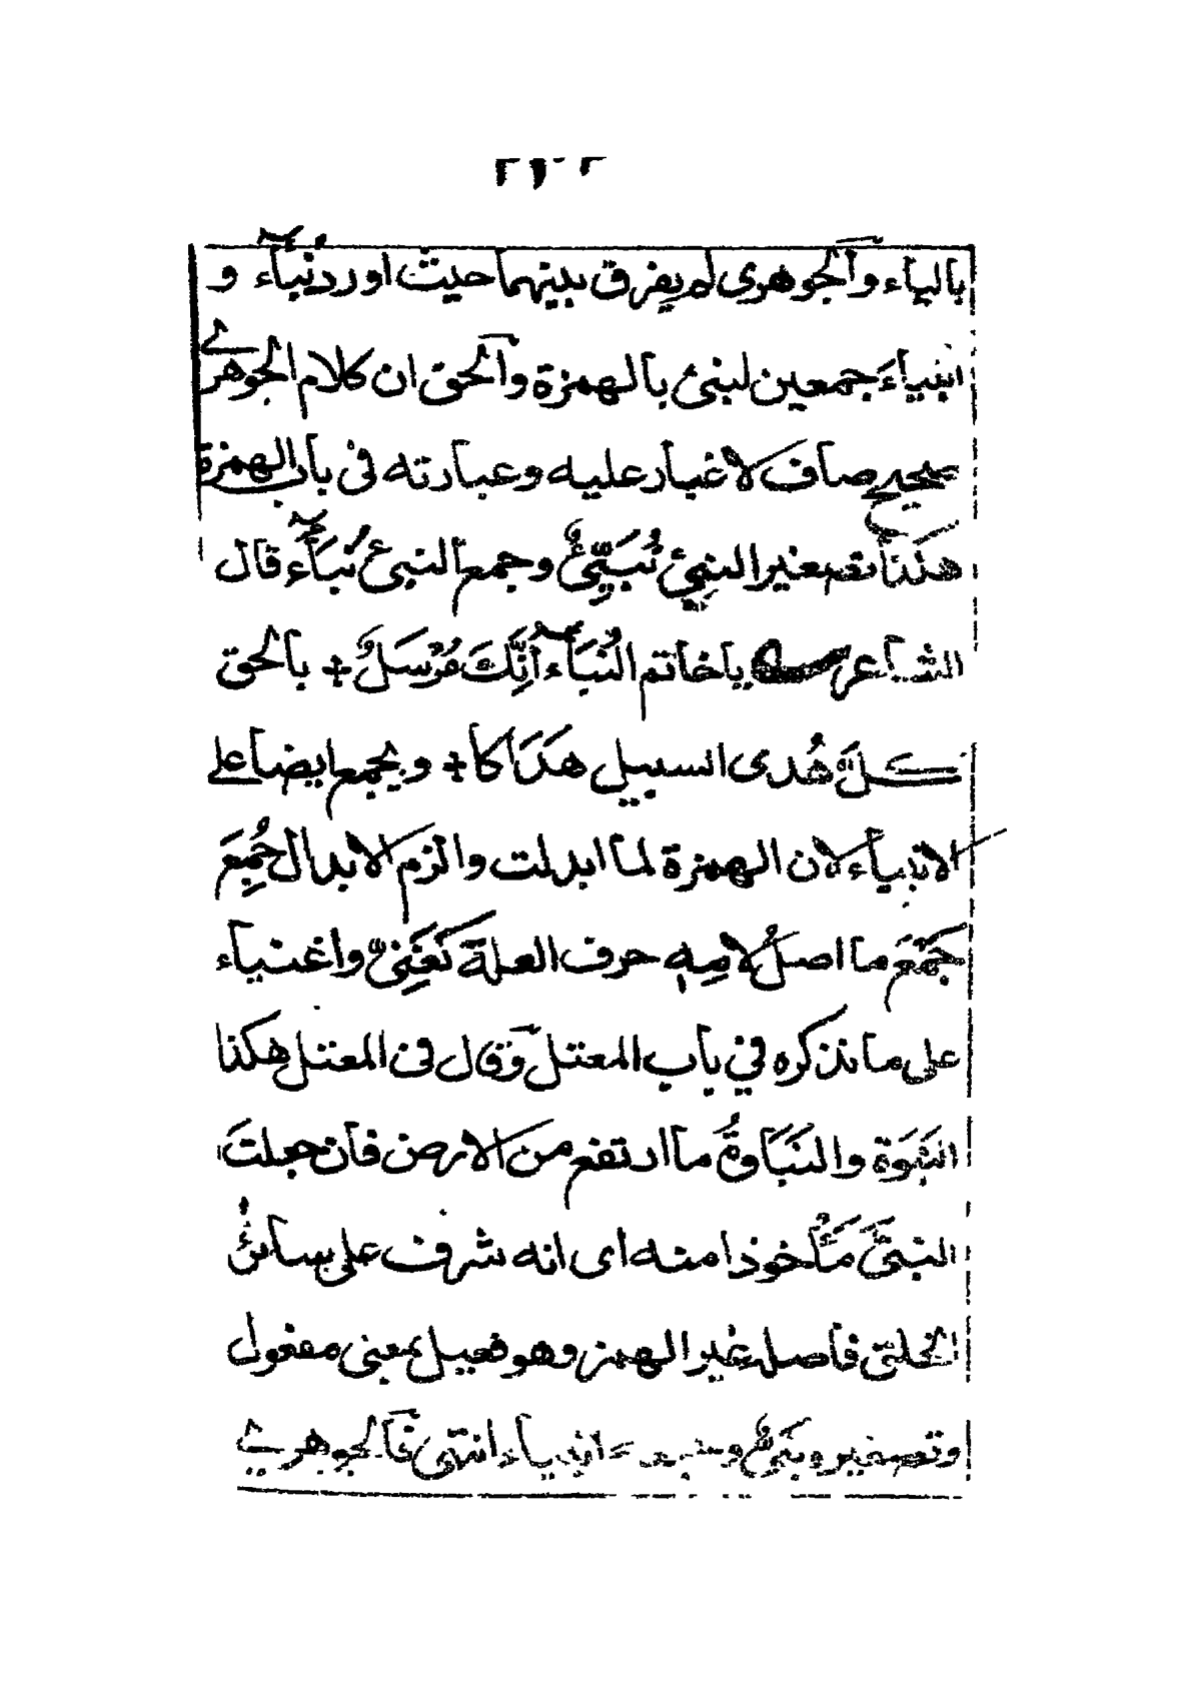 بالياء وآلجوهرى لم يفرق بينهما حيث اورد نُبَآء و
انبياءَ جمعين لنبئ بالهمزة وآلحق ان كلام الجوهرے
صحيح صاف لا غبار عليه وعبارته فى باب الهمزة
هكذا تصغير النبِئِ نُبَيِّئٌ وجمع النبئ نُبَآء قال
الشاعر ياخاتم النُبَآء اَنِّكَ مُرْسَلٌ + بالحق
كلُّ هُدى السبيل هَدَاكا + ويجمع ايضا على
الانبياء لان الهمزة لما ابدلت والزم الابدال جُمِعَ
جَمْعَ ما اصلُ لامِهٖ حرف العلة كَغَنِىٍّ واغنياء
على ما نذكره في باب المعتل وَقال فى المعتل هكذا
النَبْوَة والنَبَاوَةُ ما ارتفع من الارض فان جعلتَ
النبىَّ مَأْخوذا منه اى انه شرف على سائرُ
الخلق فاصله غير الهمز وهو فعيل بمعنى مفعول
وتصغيره نبىٌّ وجمعه انبياء انتهى فآلجوهرے